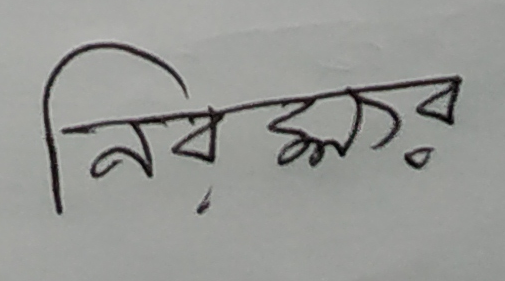 নিরক্ষর